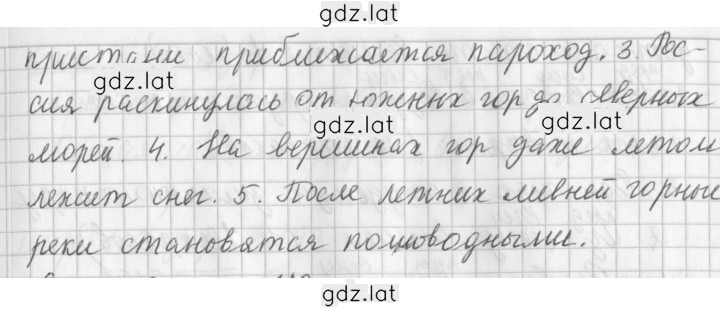 gdz.lat
пристани приближается пароход. 3. Рос-
gdz.lat gdz.lat
сия раскинулась от южных гор до северных
gdz.lat gdz.lat
морей. 4. На вершинах гор даже летом
лежит снег. 5. После летних ливней горные
gdz.lat gdz.lat
реки становятся полноводными.
gdz.lat